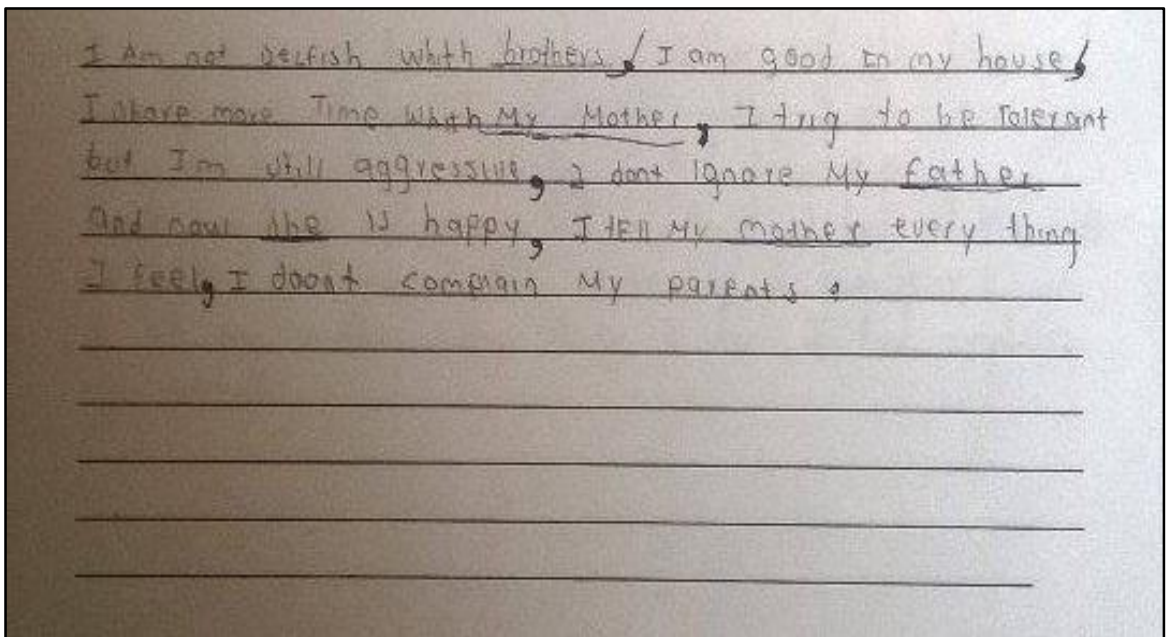 I Am not selfish whith brothers, I am good In my house,
I share more Time whith My Mother, I tryg to be Tolerant
but Im still aggressive, I dont Ignore My father
And now she Is happy, I tEll My mother every thing
I feel, I doont complain My parents.